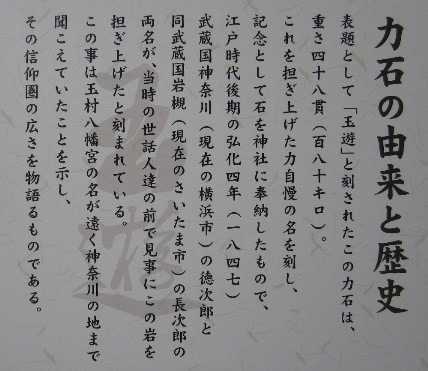 力石の由来と歴史
表題として「玉遊」と刻されたこの力石は、
重さ四十八貫(百八十キロ)。
これを担ぎ上げた力自慢の名を刻し、
記念として石を神社に奉納したもので、
江戸時代後期の弘化四年(一八四七)
武蔵国神奈川(現在の横浜市)の徳次郎と
同武蔵国岩槻(現在のさいたま市)の長次郎の
両名が、当時の世話人達の前で見事にこの岩を
担ぎ上げたと刻まれている。
この事は玉村八幡宮の名が遠く神奈川の地まで
聞こえていたことを示し、
その信仰圏の広さを物語るものである。
玉遊